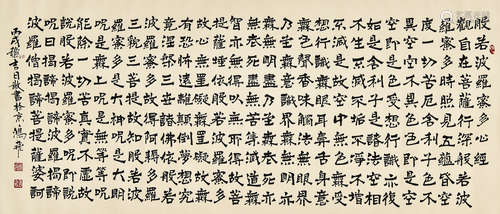 般若波羅蜜多心經
觀自在菩薩行深般若波
羅蜜多時照見五蘊皆空
度一切苦厄舍利子色不異
空空不異色色即是空
空即是色受想行識亦復
如是舍利子是諸法空相
不生不滅不垢不淨不增
不減是故空中無色無受
想行識無眼耳鼻舌身意
無色聲香味觸法無眼界
乃至無意識界無無明亦
無無明盡乃至無老死亦
無老死盡無苦集滅道無
智亦無得以無所得故菩
提薩埵依般若波羅蜜多
故心無罣礙無罣礙故無
有恐怖遠離顛倒夢想究
竟涅槃三世諸佛依般若
波羅蜜多故得阿耨多羅
三藐三菩提故知般若波
羅蜜多是大神咒是大明
咒是無上咒是無等等咒
能除一切苦真實不虛故
說般若波羅蜜多咒即說
咒曰揭諦揭諦波羅揭諦
波羅僧揭諦菩提薩婆訶
丙戌 吉日敬書於京